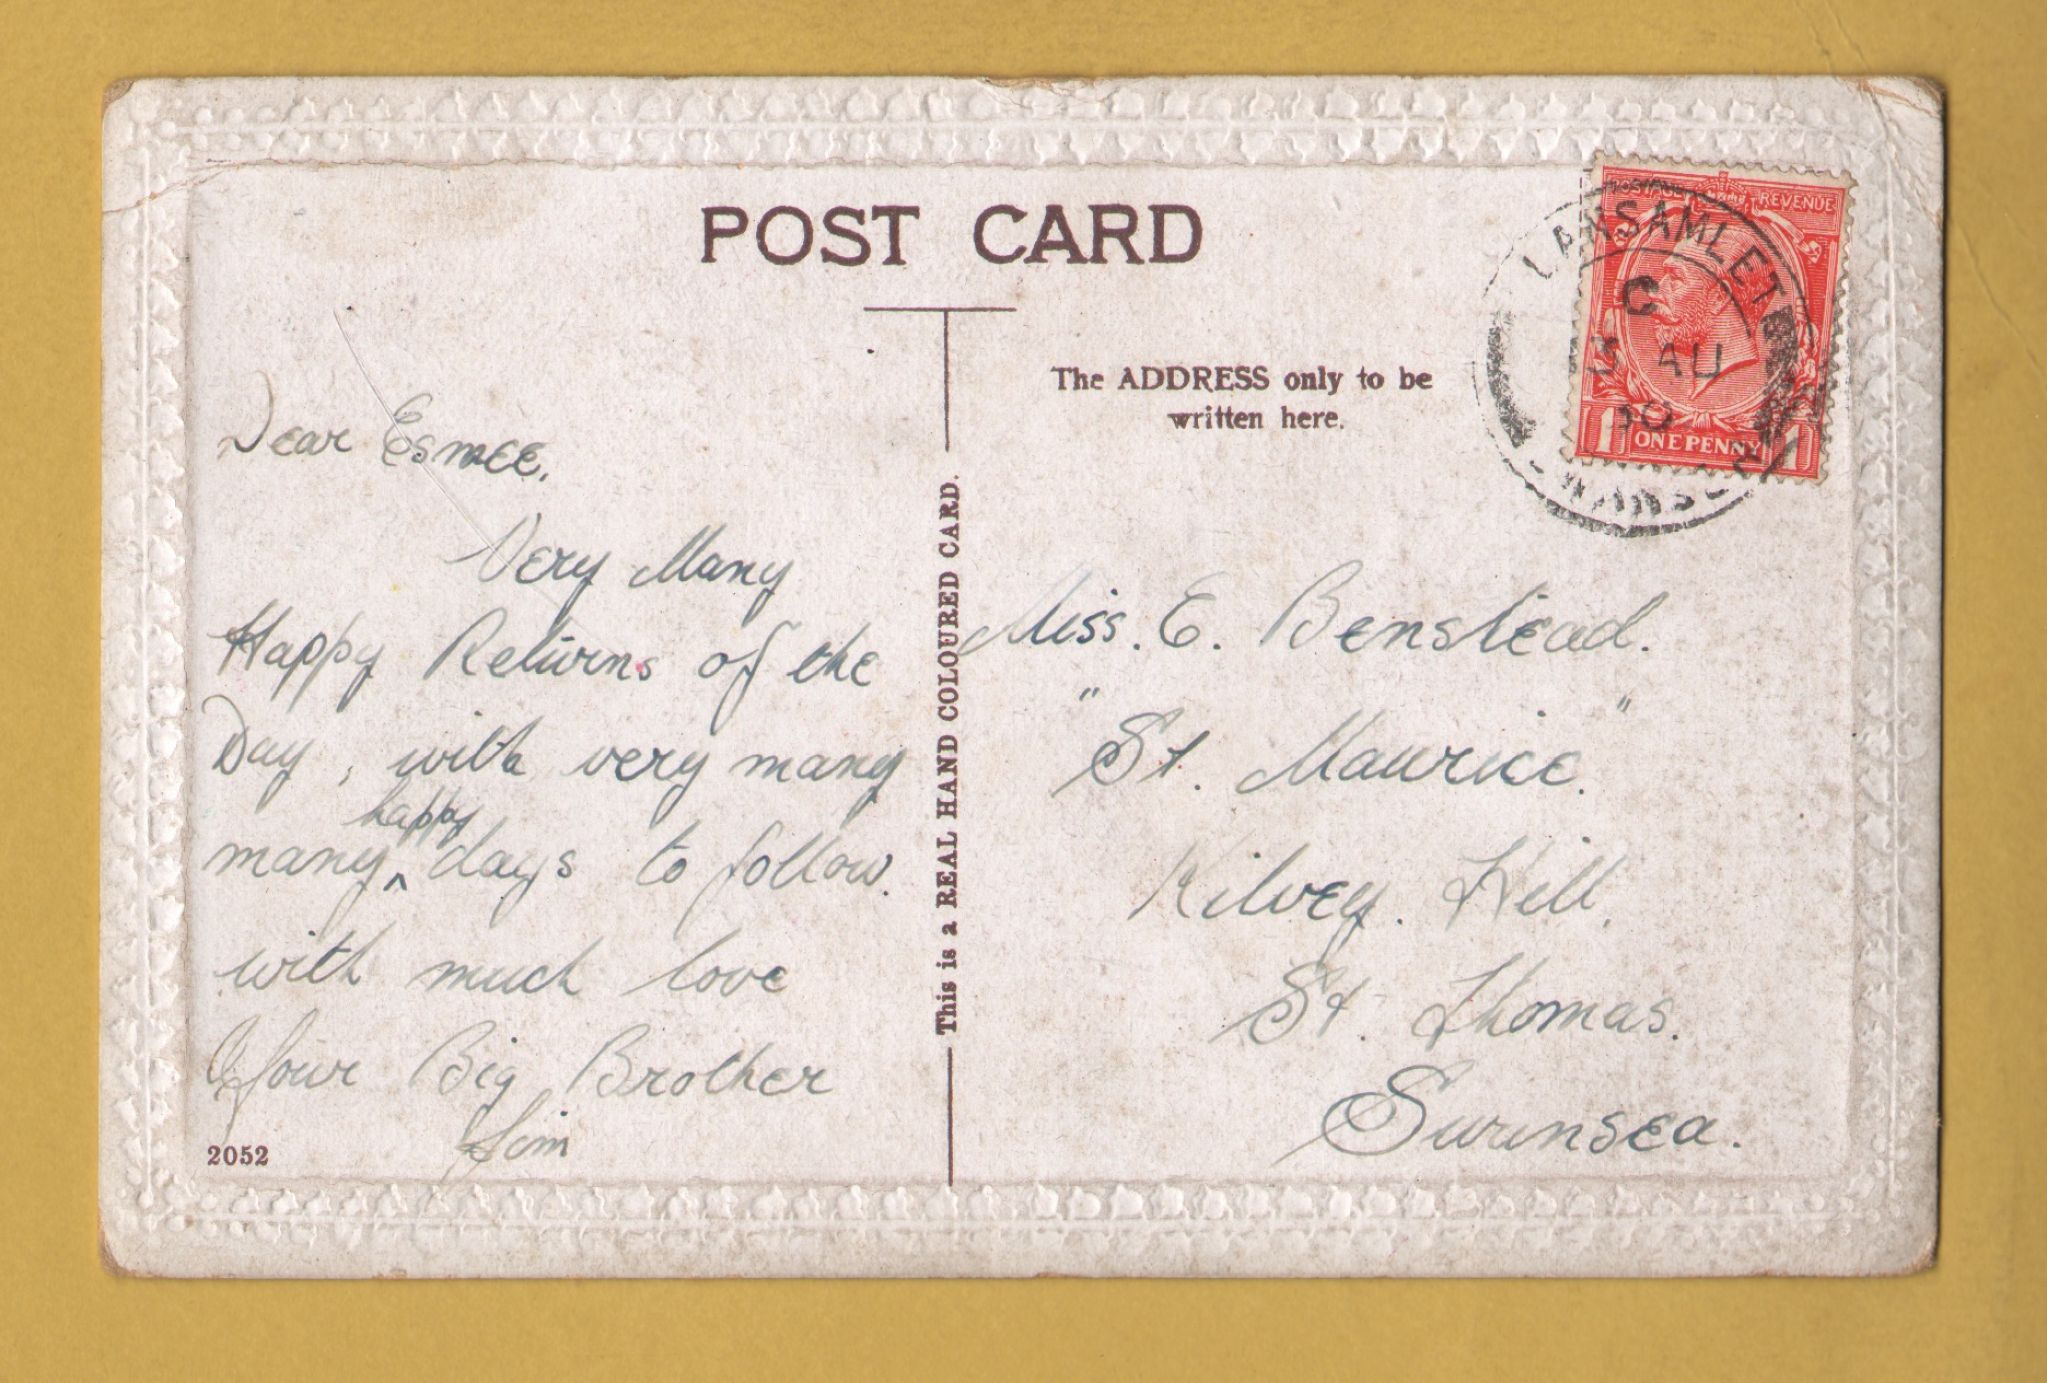 POST CARD
The ADDRESS only to be
written here.
This is a REAL HAND COLOURED CARD.
Dear Esmee,
Very Many
Happy Returns of the
Day, with very many
many ^ happy days to follow.
with much love
Your Big Brother
Jim
2052
Miss. E. Benstead.
"St. Maurice."
Kilvey. Hill,
St. Thomas.
Swansea.
POSTAGE REVENUE
LANSAMLET
C
AU
30
SWANSEA
1 ONE PENNY 1